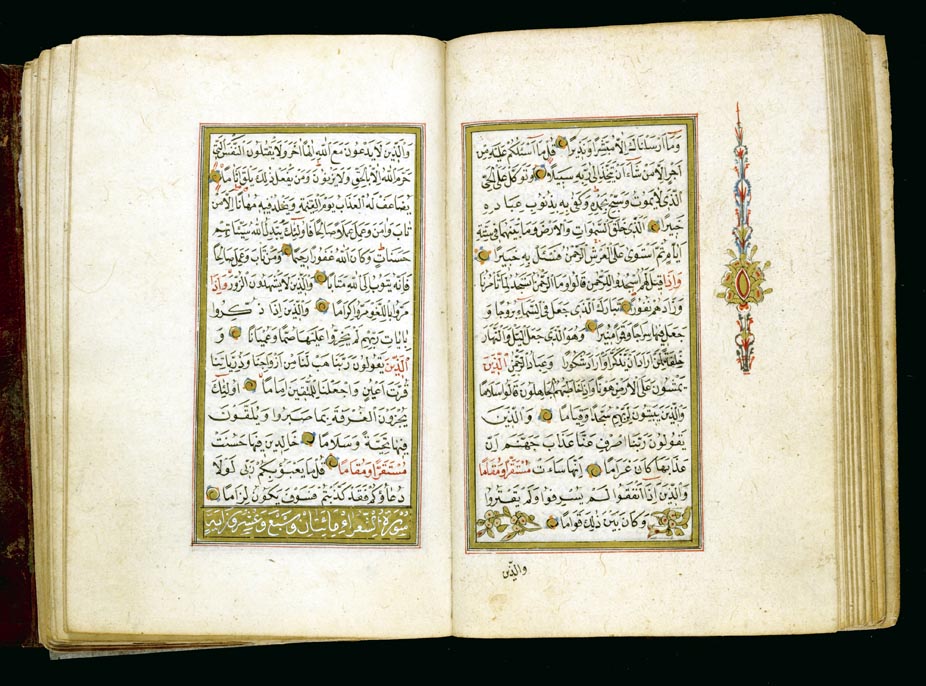 وَمَا اَرْسَلْنَاكَ اِلَّا مُبَشِّرًا وَنَذِيرًا قُلْ مَا اَسْئَلُكُمْ عَلَيْهِ مِنْ
اَجْرٍ اِلَّا مَنْ شَاءَ اَنْ يَتَّخِذَ اِلٰى رَبِّهِ سَبِيلًا وَتَوَكَّلْ عَلَى الْحَىِّ
الَّذِى لَا يَمُوتُ وَسَبِّحْ بِحَمْدِهِ وَكَفٰى بِهِ بِذُنُوبِ عِبَادِهِ
خَبِيرًا اَلَّذِى خَلَقَ السَّمٰوَاتِ وَالْاَرْضَ وَمَا بَيْنَهُمَا فِى سِتَّةِ
اَيَّامٍ ثُمَّ اسْتَوٰى عَلَى الْعَرْشِ الرَّحْمٰنُ فَسْئَلْ بِهِ خَبِيرًا
وَاِذَا قِيلَ لَهُمُ اسْجُدُوا لِلرَّحْمٰنِ قَالُوا وَمَا الرَّحْمٰنُ اَنَسْجُدُ لِمَا تَأْمُرُنَا
وَزَادَهُمْ نُفُورًا تَبَارَكَ الَّذِى جَعَلَ فِى السَّمَاءِ بُرُوجًا وَ
جَعَلَ فِيهَا سِرَاجًا وَقَمَرًا مُنِيرًا وَهُوَ الَّذِى جَعَلَ الَّيْلَ وَالنَّهَارَ
خِلْفَةً لِمَنْ اَرَادَ اَنْ يَذَّكَّرَ اَوْ اَرَادَ شُكُورًا وَعِبَادُ الرَّحْمٰنِ الَّذِينَ
يَمْشُونَ عَلَى الْاَرْضِ هَوْنًا وَاِذَا خَاطَبَهُمُ الْجَاهِلُونَ قَالُوا سَلَامًا
وَالَّذِينَ يَبِيتُونَ لِرَبِّهِمْ سُجَّدًا وَقِيَامًا وَالَّذِينَ
يَقُولُونَ رَبَّنَا اصْرِفْ عَنَّا عَذَابَ جَهَنَّمَ اِنَّ
عَذَابَهَا كَانَ غَرَامًا اِنَّهَا سَاءَتْ مُسْتَقَرًّا وَمُقَامًا
وَالَّذِينَ اِذَا اَنْفَقُوا لَمْ يُسْرِفُوا وَلَمْ يَقْتُرُوا
وَكَانَ بَيْنَ ذٰلِكَ قَوَامًا
والذين
وَالَّذِينَ لَا يَدْعُونَ مَعَ اللهِ اِلٰهًا اٰخَرَ وَلَا يَقْتُلُونَ النَّفْسَ الَّتِى
حَرَّمَ اللهُ اِلَّا بِالْحَقِّ وَلَا يَزْنُونَ وَمَنْ يَفْعَلْ ذٰلِكَ يَلْقَ اَثَامًا
يُضَاعَفْ لَهُ الْعَذَابُ يَوْمَ الْقِيٰمَةِ وَيَخْلُدْ فِيهِ مُهَانًا اِلَّا مَنْ
تَابَ وَاٰمَنَ وَعَمِلَ عَمَلًا صَالِحًا فَاُولٰئِكَ يُبَدِّلُ اللهُ سَيِّئَاتِهِمْ
حَسَنَاتٍ وَكَانَ اللهُ غَفُورًا رَحِيمًا وَمَنْ تَابَ وَعَمِلَ صَالِحًا
فَاِنَّهُ يَتُوبُ اِلَى اللهِ مَتَابًا وَالَّذِينَ لَا يَشْهَدُونَ الزُّورَ وَاِذَا
مَرُّوا بِاللَّغْوِ مَرُّوا كِرَامًا وَالَّذِينَ اِذَا ذُكِّرُوا
بِاٰيَاتِ رَبِّهِمْ لَمْ يَخِرُّوا عَلَيْهَا صُمًّا وَعُمْيَانًا وَ
الَّذِينَ يَقُولُونَ رَبَّنَا هَبْ لَنَا مِنْ اَزْوَاجِنَا وَذُرِّيَّاتِنَا
قُرَّتَ اَعْيُنٍ وَاجْعَلْنَا لِلْمُتَّقِينَ اِمَامًا اُولٰئِكَ
يُجْزَوْنَ الْغُرْفَةَ بِمَا صَبَرُوا وَيُلَقَّوْنَ
فِيهَا تَحِيَّةً وَسَلَامًا خَالِدِينَ فِيهَا حَسُنَتْ
مُسْتَقَرًّا وَمُقَامًا قُلْ مَا يَعْبَؤُا بِكُمْ رَبِّى لَوْلَا
دُعَاؤُكُمْ فَقَدْ كَذَّبْتُمْ فَسَوْفَ يَكُونُ لِزَامًا
سورة الشعرا وماتان وسبع وعشرو اية